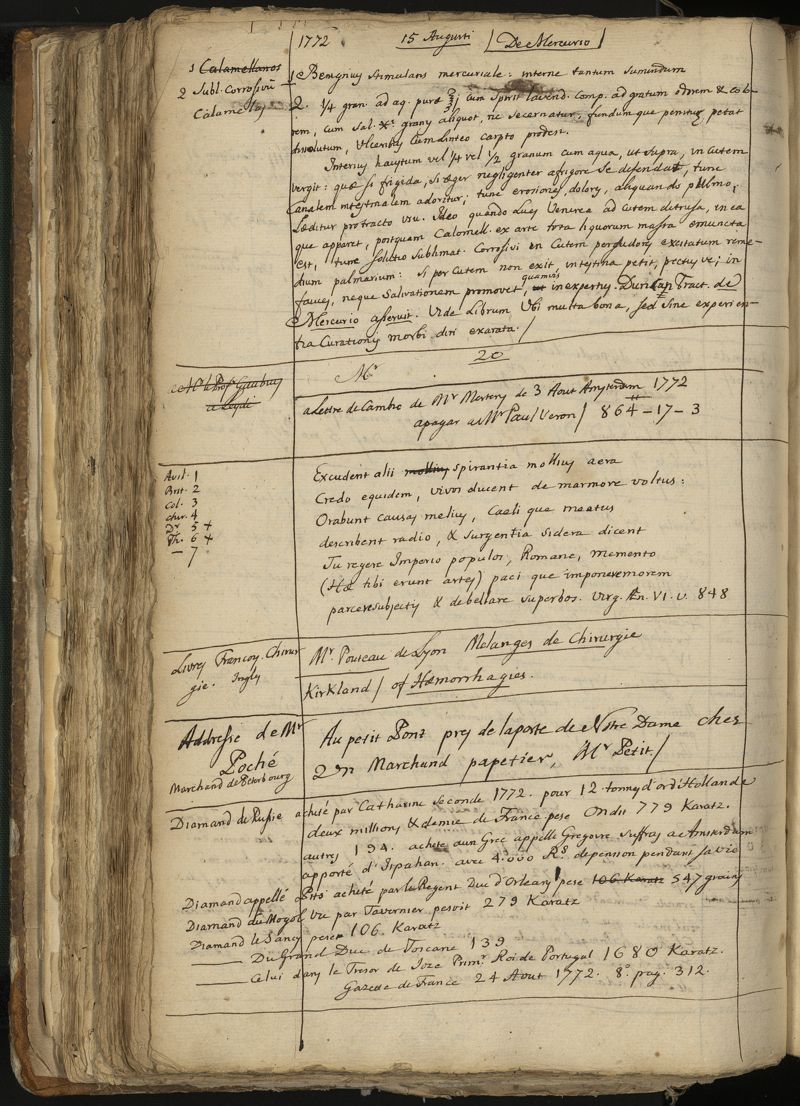 1772 15 Augusti De Mercurio
1 Calamellanos
2 Subl. Corrosivũ
Calamellos
1 Benignius stimulans mercuriale: interne tantum sumendum
2. ¼ gran. ad aq. puræ ℥j cum spirit lavend. comp. ad gratum odorem & colo-
rem, cum sal. grany aliquot, ne secernatur, fundum que penitus petat
dissolutum, Ulceribus cum linteo carpto prodest.
Interius haustum vel ¼ vel ½ granum cum aqua, ut supra, in Cutem
vergit: quæ si frigida, si æger negligenter a frigore se defendat, tunc
Canalem intestinalem adoritur; tunc erosiones, dolores, aliquando ptialmo,
Læditur protracto usu. Ideo quando Lues Venerea ad cutem detrusa, in ea
que apparet, postquam Calomell. ex arte tota liquorum massa emuncta
est, tunc solutio Sublimat. Corrosivi en Cutem excitatum reme-
dium palmarium: si per Cutem non exit, intestina petit, pectus ve; in
fauces, neque Salivationem promovet, quamvis inexpertus. Duncan Tract. de
Mercurio asseruit. Vide Librum Ubi multa bona, sed sine experien-
tia Curationis morbi diri exarata. /
20
Mr le Prof. Gaubius
a Leyde
Mr
a Lettre de Cambe de Mr Mertens de 3 Aout Amsterdam 1772
apayar a Mr Paul Veron / 864 - 17 - 3
Avil. 1
Bnt. 2
Col. 3
Chir. 4
Dr 5 +
Ph. 6 +
— 7
Excudent alii mollius spirantia mollius aera
Credo equidem, vivos ducent de marmore voltus:
Orabunt causas melius, Caeli que meatus
describent radio, & surgentia sidera dicent
Tu regere Imperio populos, Romane, memento
(Hæ tibi erunt artes) paci que imponere morem
parcere subjectis & debellare superbos. Virg. Æn. VI. v. 848
Livres Francoys. Chirur
gie. Ingls
Mr. Pouteau de Lyon Melanges de Chirurgie
Kirkland / of Hæmorrhagies.
Addresse de Mr
Poché
Marchand de Peterbourg
Au petit Pont pres de la porte de Notre Dame chez
Un Marchand papetier, Mr Petit /
Diamand de Russie acheté par Catharine Seconde 1772. pour 12 tonnes d'or d'Hollande
deux millions & demie de France pese Ondis 779 Karatz.
autres 194. acheté a un Grec appellé Gregoire Suffras a Amsterdam
apporté d'Ispahan. avec 4.000 Rs de pension pendant sa vie
Diamand appellé Pits acheté par le Regent Duc d'Orleans pese 106 Karatz 547 grains
Diamand du Mogol vu par Tavernier pesoit 279 Karatz
Diamand le Sancy pese 106. Karatz
—— Du Grand Duc de Toscane 139
—— Celui dans le Tresor de Joze Prim.r Roi de Portugal 1680 Karatz.
Gazette de France 24 Aout 1772. 8°. pag. 312.